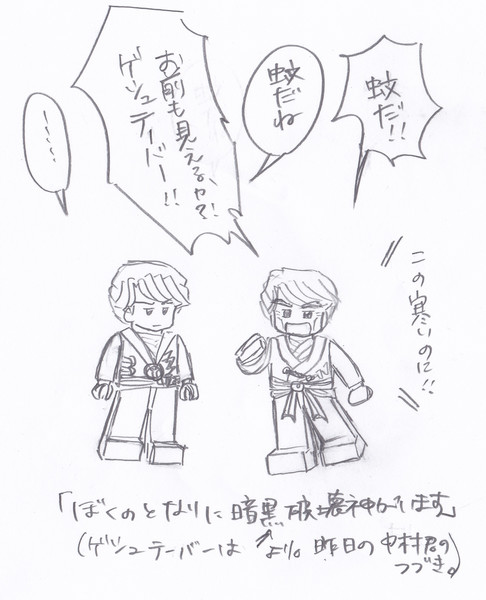 蚊だ!!
蚊だね
お前も見えるか?!
ゲシュティバー!!
〜〜…
この寒いのに!!
「ぼくのとなりに暗黒破壊神がいます」
(ゲシュテーバーは↗より。昨日の中村君の
つづき。)